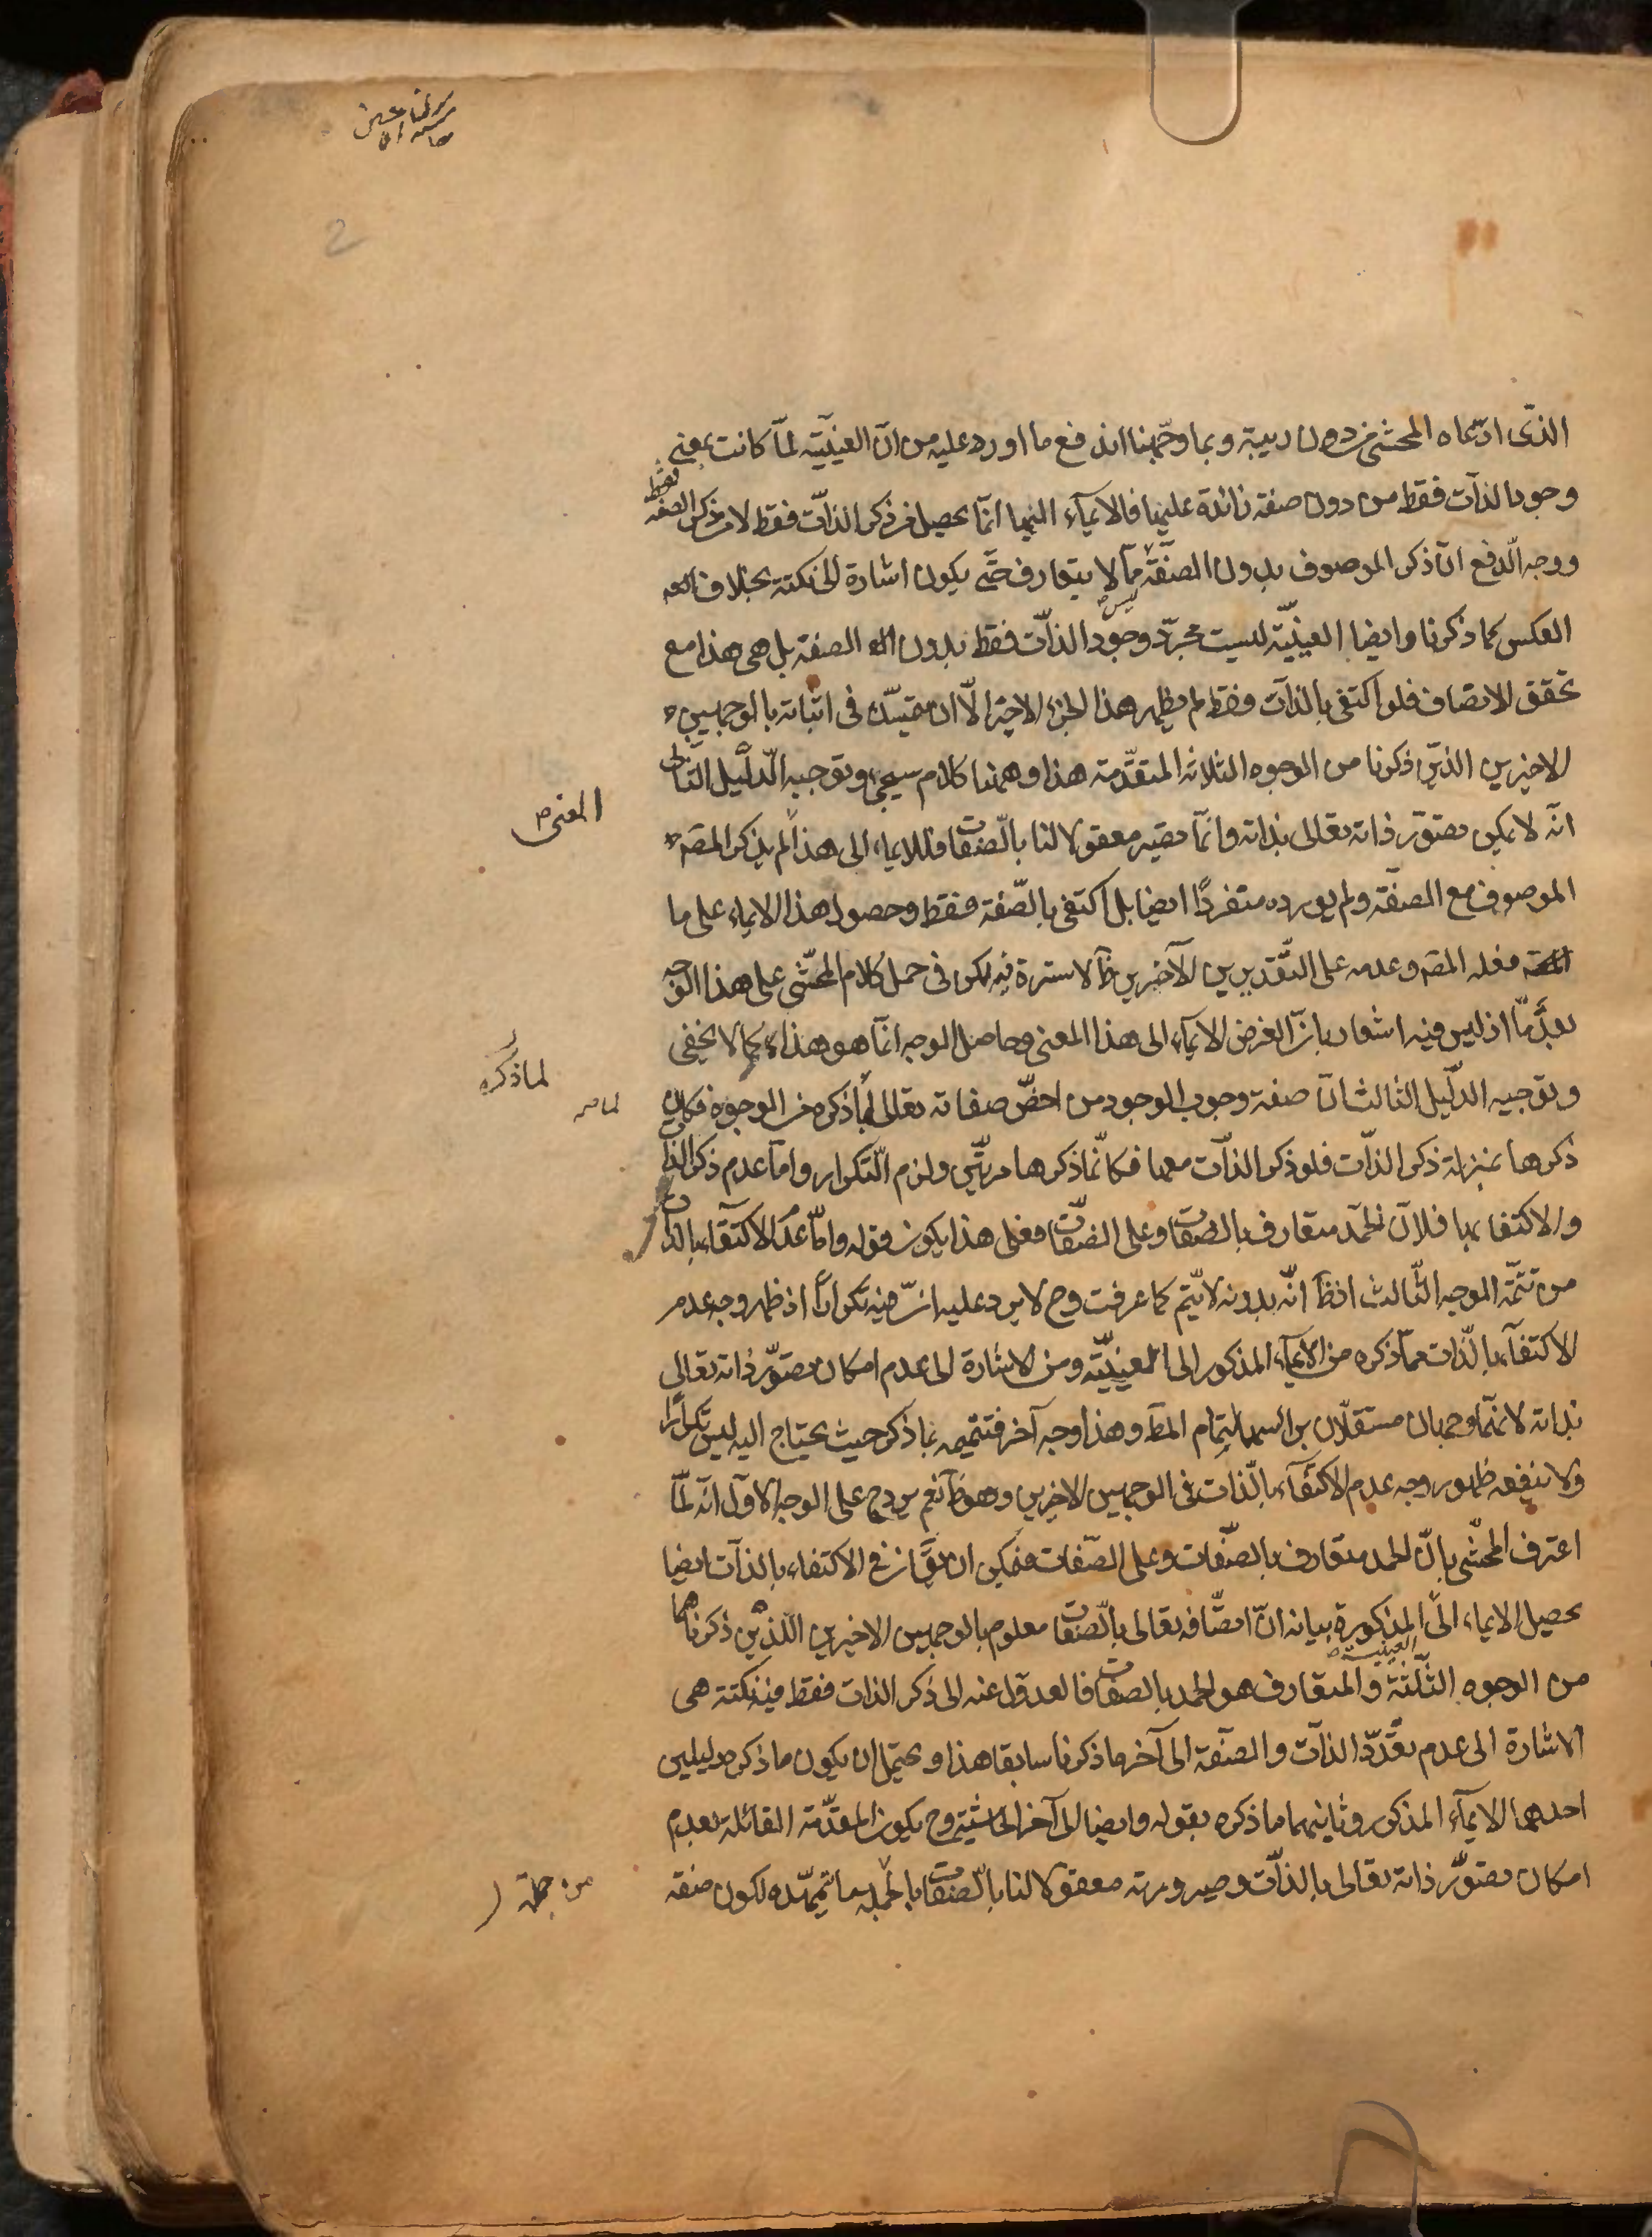 2
الذى ادعاه المحشى من دون ريبة وبما وجهنا اندفع ما اورد عليه من ان العينية لما كانت بمعنى
وجود الذات فقط من دون صفة زائدة عليها فالايماء اليها انما يحصل من ذكر الذات فقط لا من ذكر الصفة فقط
ووجه الدفع ان ذكر الموصوف بدون الصفة مما لا يتعارف حتى يكون اشارة الى نكتة بخلاف
العكس كما ذكرنا وايضا العينية ليست مجرد وجود الذات فقط بدون الصفة بل هى هذا مع
تحقق الاتصاف فلو اكتفى بالذات فقط لم يظهر هذا الجزء الاخير الا ان يتمسك فى اثباته بالوجهين
الاخيرين الذين ذكرنا من الوجوه الثلاثة المتقدمة هذا وههنا كلام سيجئ وتوجيه الدليل الثانى
انه لا يمكن تصور ذاته تعالى بذاته وانما يصير معقولا لنا بالصفات فللايماء الى هذا لم يذكر المصـ
المعنى
الموصوف مع الصفة ولم يورده متفردا ايضا بل اكتفى بالصفة فقط وحصول هذا الايماء على ما
فعله المصـ وعدمه على التقديرين الآخرين مما لا سترة فيه لكن فى حمل كلام المحشى على هذا الوجه
بعد ما اذ ليس فيه اشعار بان الغرض الايماء الى هذا المعنى وحاصل الوجه انما هو هذا كما لا يخفى
وتوجيه الدليل الثالث ان صفة وجوب الوجود من اخص صفاته تعالى لما ذكره من الوجوه فكان
لما ذكره
لما مر
ذكرها بمنزلة ذكر الذات فلو ذكر الذات معها فكانما ذكرها مرتين ولزم التكرار واما عدم ذكر الذات
والاكتفاء بها فلان الحمد متعارف بالصفات وعلى الصفات فعلى هذا يكون قوله واما عدم الاكتفاء بالذات
من تتمة الوجه الثالث اذ ظ انه بدونه لا يتم كما عرفت وح لا يرد عليه ان فيه تكرارا اذ ظهر وجه عدم
الاكتفاء بالذات مما ذكره من الايماء المذكور الى العينية ومن الاشارة الى عدم امكان تصور ذاته تعالى
بذاته لانهما وجهان مستقلان براسهما لتمام المط وهذا وجه آخر فتتميمه بما ذكر حيث يحتاج اليه ليس تكرارا
ولا ينفعه ظهور وجه عدم الاكتفاء بالذات فى الوجهين الاخرين وهو ظ نعم يرد ح على الوجه الاول انه لما
اعترف المحشى بان الحمد متعارف بالصفات وعلى الصفات فيمكن ان يق ان فى الاكتفاء بالذات ايضا
يحصل الايماء الى العينية المذكورة بيانه ان اتصافه تعالى بالصفات معلوم بالوجهين الاخيرين اللذين ذكرناهما
من الوجوه الثلثة والمتعارف هو الحمد بالصفات فالعدول عنه الى ذكر الذات فقط فيه نكتة هى
الاشارة الى عدم تعدد الذات والصفة الى آخر ما ذكرنا سابقا هذا ويحتمل ان يكون ما ذكره دليلين
احدهما الايماء المذكور وثانيهما ما ذكره بقوله وايضا الى آخر الحاشية وح يكون المقدمة القائلة بعدم
امكان تصور ذاته تعالى بالذات وصيرورته معقولا لنا بالصفات بالجملة مما يتم تمهيده لكون صفة
من جملة